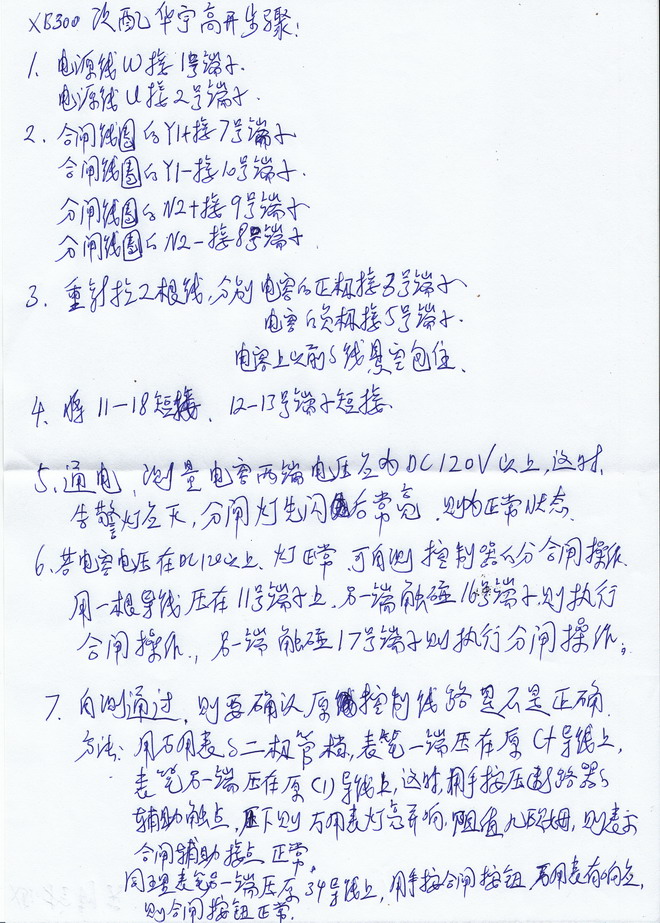 XB300 改配华宇高开步骤:
1. 电源线W接1号端子.
电源线U接2号端子.
2. 合闸线圈的Y1+接7号端子
合闸线圈的Y1-接10号端子.
分闸线圈的N2+接9号端子
分闸线圈的N2-接8号端子.
3. 重新拉2根线,分别电容的正极接3号端子
电容的负极接5号端子.
电容上以前的线悬空包住.
4. 将11-18短接、12-13号端子短接.
5. 通电,测量电容两端电压应为DC120V以上,这时,
告警灯应灭,分闸灯先闪后常亮.则为正常状态.
6. 若电容电压在DC120以上.灯正常,可自测控制器的分合闸操作.
用一根导线压在11号端子上,另一端触碰16号端子则执行
合闸操作,另一端触碰17号端子则执行分闸操作;
7. 自测通过,则要确认原控制线路是不是正确.
方法:用万用表的二极管档,表笔一端压在原C+导线上,
表笔另一端压在原C1导线上,这时,用手按压断路器的
辅助触点,压下则万用表灯亮并响.阻值几欧姆,则表示
合闸辅助接点正常.
同理表笔另一端压原34导线上,用手按合闸按钮,万用表有响应,
则合闸按钮正常.